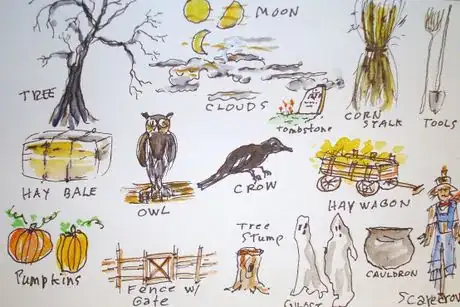 MOON
TREE
CLOUDS
Tombstone
CORN
STALK
TOOLS
HAY BALE
OWL
CROW
HAY WAGON
Pumpkins
Fence w/
Gate
Tree
Stump
GHOST
CAULDRON
Scarecrow